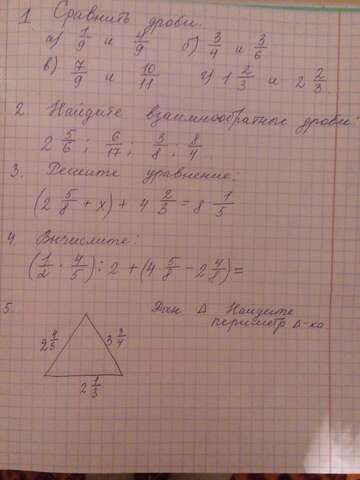 1. Сравнить дроби.
а) 1/9 и 4/9 б) 3/4 и 3/6
в) 7/9 и 10/11 г) 1 2/3 и 2 2/3.
2. Найдите взаимнообратные дроби:
2 5/6; 6/17; 3/8; 8/4
3. Решите уравнение:
(2 5/8 + x) + 4 2/3 = 8 1/5
4. Вычислите:
(1/2 · 4/5) : 2 + (4 5/8 − 2 4/8) =
5. Дан Δ Найдите
периметр Δ-ка
2 4/5 3 3/4
2 1/3